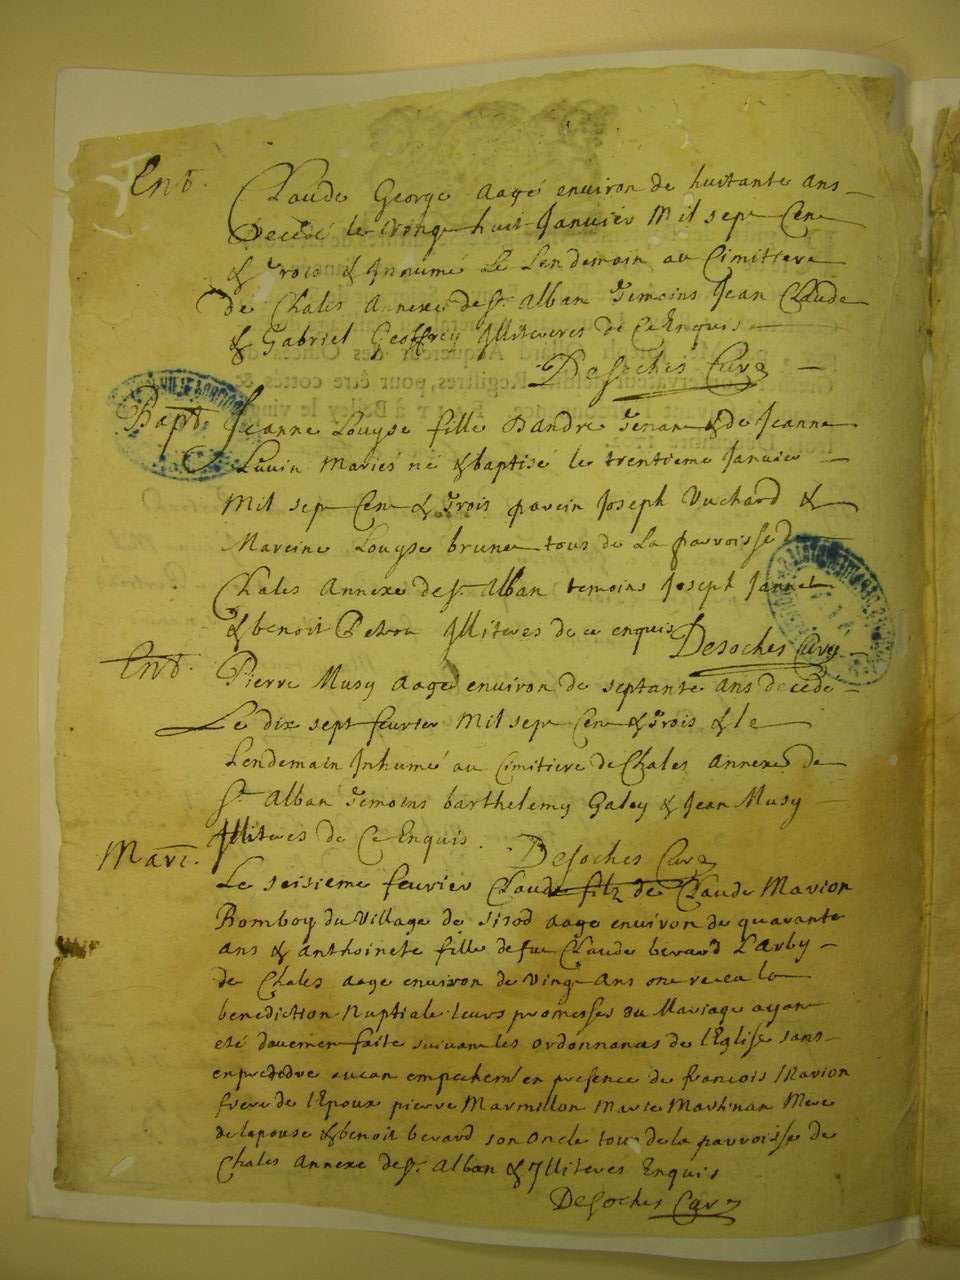 Ent.
Claude George aagé environ de huitante ans
Decedé le vingt huit Janvier Mil sept Cent
& Trois & Inhumé Le Lendemain au Cimitiere
De Chales Annexe de St. Alban Temoins Jean Claude
& Gabriel Geoffrey Illiteres de Ce Enquis
Desoches Curé
Bapt.
Jeanne Louyse fille Dandre Tenant & de Jeanne
Luuin Mariés né & baptisé le trentieme Janvier
Mil sept Cent & Trois parein Joseph Vuchard &
Mareine Louyse brunet tous de La parroisse
Chales Annexe de St. Alban temoins Joseph Jannet
& benoit Illiteres de ce enquis
Desoches Curé
Ent.
Pierre Musy Aagé environ de septante Ans decedé
Le dix sept fevrier Mil sept Cent & Trois & le
Lendemain Inhumé au Cimitiere de Chales Annexe de
St. Alban Temoins barthelemy Galey & Jean Musy
Illiteres de Ce Enquis.
Desoches Curé
Mari.
Le seisieme fevrier Claude filz de Claude Marion
Bomboy du Village de Sisod aage environ de quarante
ans & Anthoinete fille de fut Claude berard Larby
de Chales aage environ de vingt Ans ont receu la
benediction Nuptiale leurs promesses du Mariage ayant
eté deuement faite suivant les ordonnances de l'Eglise sans
aucun empechemt en presence de francois Marion
frere de l'Epoux pierre Marmillon Marie Mere
de lepouse & benoit berard son oncle tous de la parroisse de
Chales Annexe de St. Alban & Illiteres Enquis
Desoches Curé